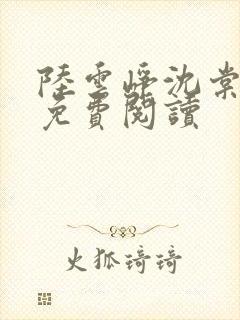 陸雲崢沈棠
免費閱讀
火狐琦琦